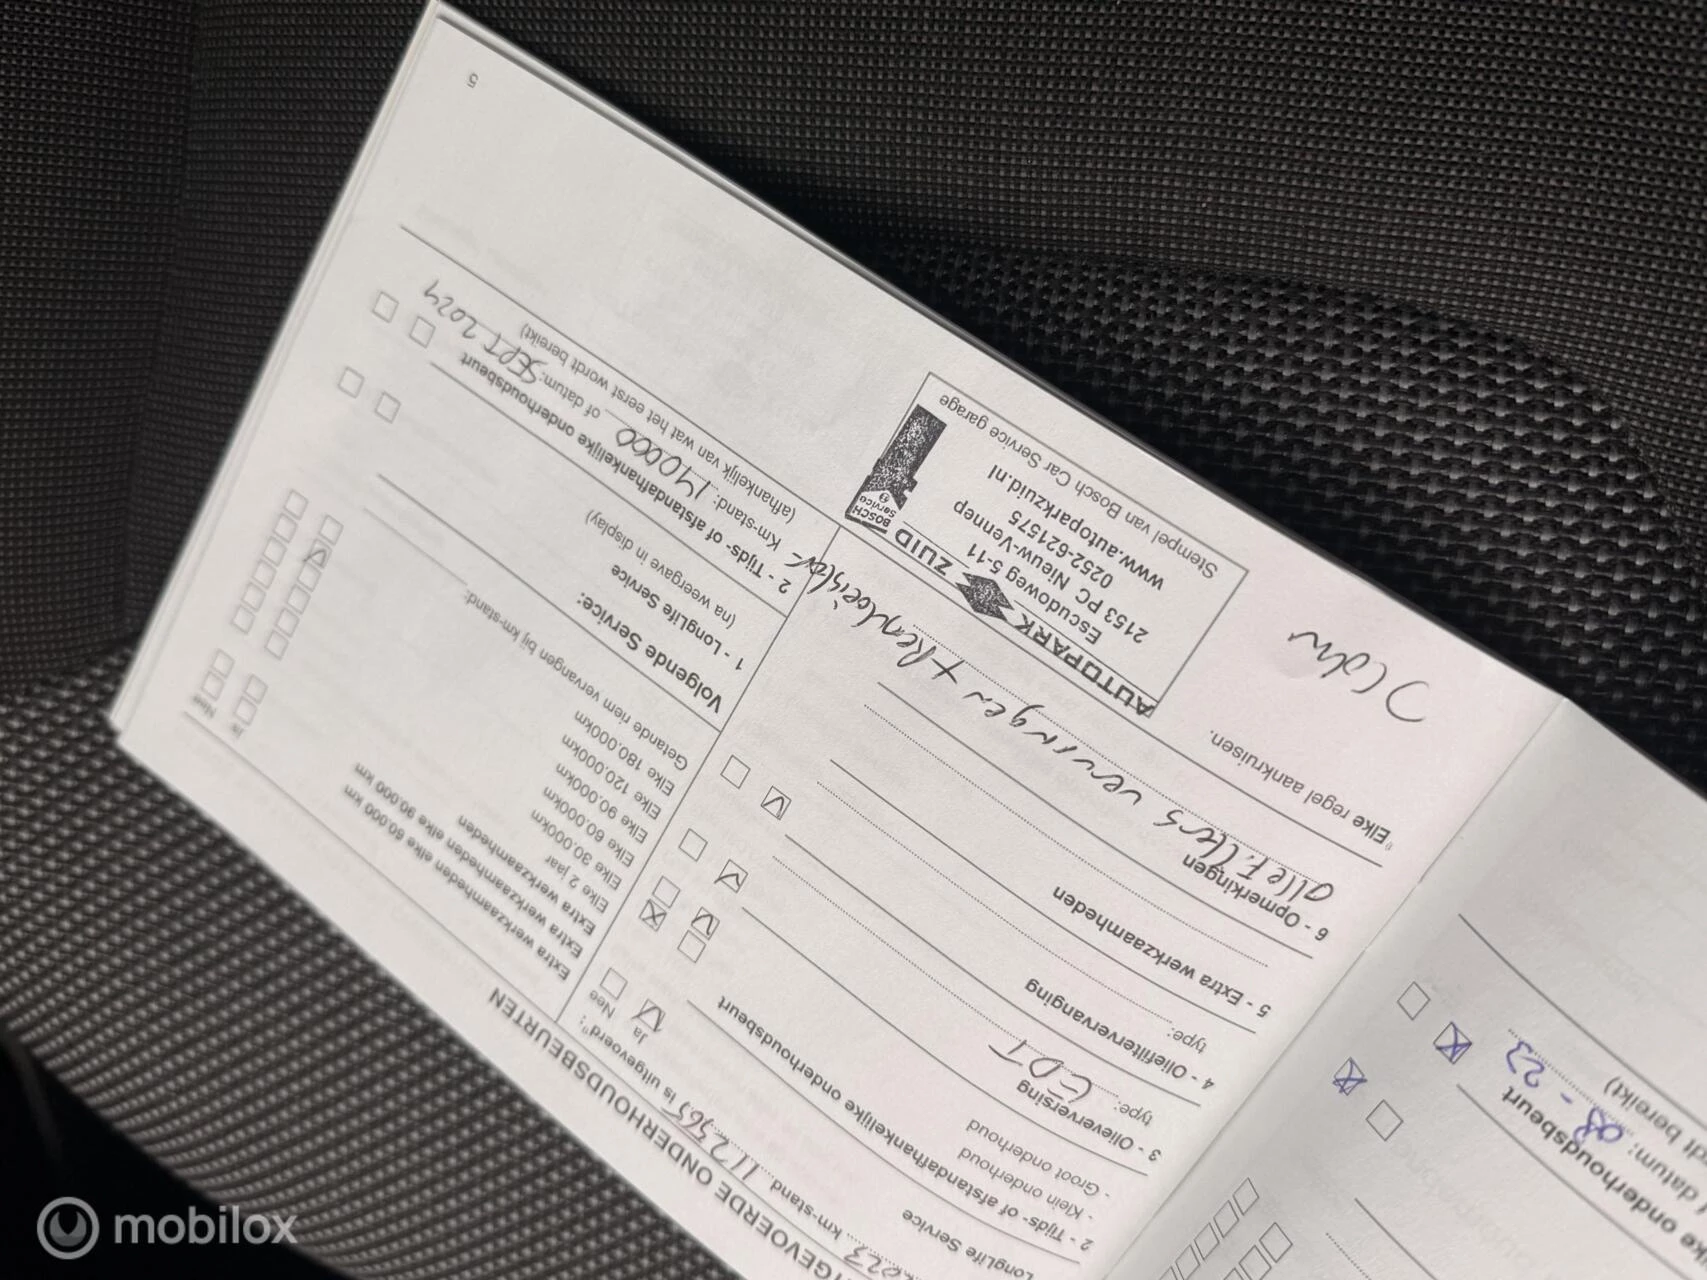 UITGEVOERDE ONDERHOUDSBEURTEN
km-stand: 112565 is uitgevoerd¹⁾:
Ja
Nee
LongLife Service
2 - Tijds- of afstandafhankelijke onderhoudsbeurt
- Klein onderhoud
- Groot onderhoud
3 - Olieverversing
type:
4 - Oliefiltervervanging
type:
5 - Extra werkzaamheden
6 - Opmerkingen
alle Filters vervangen +
¹⁾ Elke regel aankruisen.
AUTOPARK ZUID
Escudoweg 5-11
2153 PC Nieuw-Vennep
0252-621575
www.autoparkzuid.nl
BOSCH
Service
Stempel van Bosch Car Service garage
Extra werkzaamheden elke 60.000 km
Extra werkzaamheden elke 90.000 km
Extra werkzaamheden
Elke 2 jaar
Elke 30.000km
Elke 60.000km
Elke 90.000km
Elke 120.000km
Elke 180.000km
Getande riem vervangen bij km-stand:
Ja
Nee
Volgende Service:
1 - LongLife Service
(na weergave in display)
2 - Tijds- of afstandafhankelijke onderhoudsbeurt
Km-stand: 140000 of datum: SEPT 2024
(afhankelijk van wat het eerst wordt bereikt)
5
onderhoudsbeurt
datum: 08 - 23
dt bereikt)
mobilox